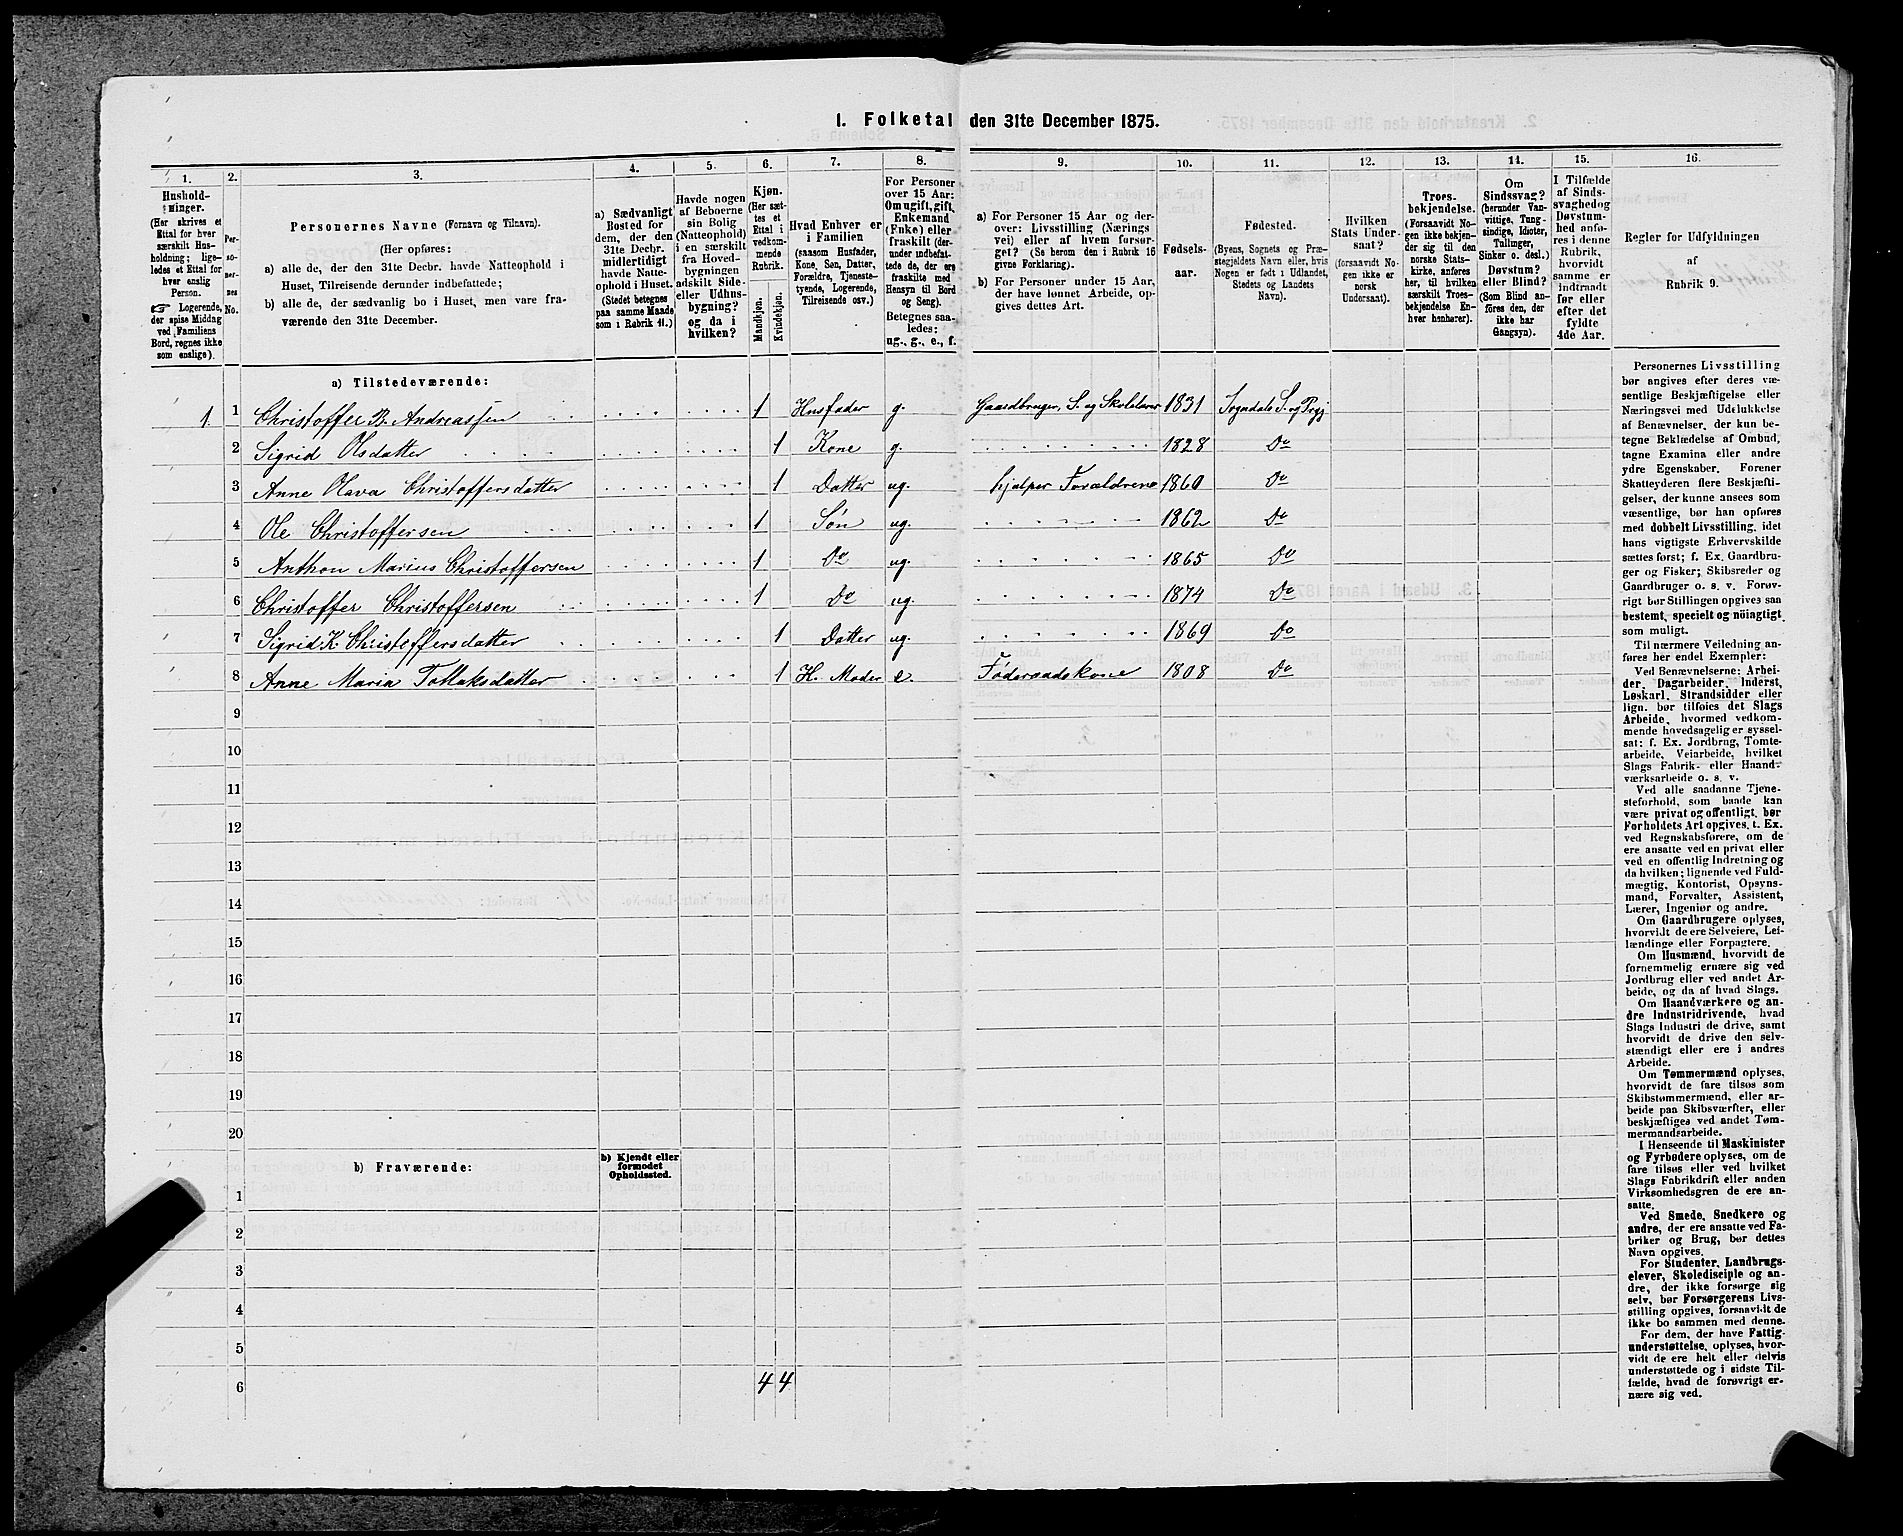 1. Folketal den 31te December 1875.
1. 2. 3. 4. 5. 6. 7. 8. 9. 10. 11. 12. 13. 14. 15. 16.
Hushold-
ninger.
(Her skrives et
Ettal for hver
særskilt Hus-
holdning; lige-
ledes et Ettal for
hver enslig
Person.
☞ Logerende,
der spise Middag
ved Familiens
Bord, regnes ikke
som enslige).
Per-
so-
ner-
nes
No.
Personernes Navne (Fornavn og Tilnavn).
(Her opføres:
a) alle de, der den 31te Decbr. havde Natteophold i
Huset, Tilreisende derunder indbefattede;
b) alle de, der sædvanlig bo i Huset, men vare fra-
værende den 31te December.
a) Sædvanligt
Bosted for
dem, der den
31te Decbr.
midlertidigt
havde Natte-
ophold i Huset.
(Stedet betegnes
paa samme Maade
som i Rubrik 11.)
Havde nogen
af Beboerne
sin Bolig
(Natteophold)
i en særskilt
fra Hoved-
bygningen
adskilt Side-
eller Udhus-
bygning?
og da i
hvilken?
Kjøn.
(Her sæt-
tes et
Ettal i
vedkom-
mende
Rubrik.
Mandkjøn.
Kvindekjøn.
Hvad Enhver er
i Familien
(saasom Husfader,
Kone, Søn, Datter,
Forældre, Tjeneste-
tyende, Logerende,
Tilreisende osv.)
For Personer
over 15 Aar:
Om ugift, gift,
Enkemand
(Enke) eller
fraskilt (der-
under indbefat-
tede de, der ere
fraskilte med
Hensyn til Bord
og Seng).
Betegnes saa-
ledes:
ug., g., e., f.
a) For Personer 15 Aar og der-
over: Livsstilling (Nærings-
vei) eller af hvem forsør-
get? (Se herom den i Rubrik 16
givne Forklaring).
b) For Personer under 15 Aar,
der have lønnet Arbeide, op-
gives dettes Art.
Fødsels-
aar.
Fødested.
(Byens, Sognets og Præ-
stegjeldets Navn eller, hvis
Nogen er født i Udlandet,
Stedets og Landets
Navn).
Hvilken
Stats Under-
saat?
(forsaavidt No-
gen ikke er
norsk
Undersaat).
Troes-
bekjendelse.
(Forsaavidt No-
gen ikke beken-
der sig til den
norske Stats-
kirke, anføres
her, til hvilken
særskilt Troes-
bekjendelse En-
hver henhører).
Om
Sindssvag?
(herunder Van-
vittige, Tung-
sindige, Idioter,
Tullinger,
Sinker o. desl.)
Døvstum?
eller Blind?
(Som Blind an-
føres den, der
ikke har
Gangsyn).
I Tilfælde
af Sinds-
svaghed og
Døvstum-
hed anfø-
res i denne
Rubrik,
hvorvidt
samme er
indtraadt
før eller
efter det
fyldte
4de Aar.
Regler for Udfyldningen
af
Rubrik 9.
a) Tilstedeværende:
1. 1 Christoffer B. Andreassen 1 Husfader g. Gaardbruger, S. og Skolelærer 1831 Sogndals S. og Prgj
2 Sigrid Olsdatter 1 Kone g. 1828 Do
3 Anne Olava Christoffersdatter 1 Datter ug. hjælper Forældrene 1860 Do
4 Ole Christoffersen 1 Søn ug. 1862 Do
5 Anthon Marius Christoffersen 1 Do ug. 1865 Do
6 Christoffer Christoffersen 1 Do ug. 1874 Do
7 Sigrid K Christoffersdatter 1 Datter ug. 1869 Do
8 Anne Maria Tollaksdatter 1 H. Moder e. Föderaadskone 1808 Do
9
10
11
12
13
14
15
16
17
18
19
20
b) Fraværende:
b) Kjendt eller
formodet
Opholdssted.
1
2
3
4
5
6 4 4
Personernes Livsstilling
bør angives efter deres væ-
sentlige Beskjæftigelse eller
Næringsvei med Udelukkelse
af Benævnelser, der kun be-
tegne Beklædelse af Ombud,
tagne Examina eller andre
ydre Egenskaber. Forener
Skatteyderen flere Beskjæfti-
gelser, der kunne ansees som
væsentlige, bør han opføres
med dobbelt Livsstilling, idet
hans vigtigste Erhvervskilde
sættes først; f. Ex. Gaardbru-
ger og Fisker; Skibsreder og
Gaardbruger o. s. v. Forøv-
rigt bør Stillingen opgives saa
bestemt, specielt og nöiagtigt
som muligt.
Til nærmere Veiledning an-
føres her endel Exempler:
Ved Benævnelserne: Arbei-
der, Dagarbeider, Inderst,
Løskarl, Strandsidder eller
lign. bør tilføies det Slags
Arbeide, hvormed vedkom-
mende hovedsagelig er syssel-
sat; f. Ex. Jordbrug, Tomte-
arbeide, Veiarbeide, hvilket
Slags Fabrik- eller Haand-
værksarbeide o. s. v.
Ved alle saadanne Tjene-
steforhold, som baade kan
være privat og offentligt, bør
Forholdets Art opgives, t. Ex.
ved Regnskabsførere, om de
ere ansatte ved en privat eller
ved en offentlig Indretning og
da hvilken; lignende ved Fuld-
mægtig, Kontorist, Opsyns-
mand, Forvalter, Assistent,
Lærer, Ingeniør og andre.
Om Gaardbrugere oplyses,
hvorvidt de ere Selveiere, Lei-
lændinge eller Forpagtere.
Om Husmænd, hvorvidt de
fornemmelig ernære sig ved
Jordbrug eller ved andet Ar-
beide, og da af hvad Slags.
Om Haandværkere og an-
dre Industridrivende, hvad
Slags Industri de drive, samt
hvorvidt de drive den selv-
stændigt eller ere i andres
Arbeide.
Om Tømmermænd oplyses,
hvorvidt de fare tilsøs som
Skibstømmermænd, eller ar-
beide paa Skibsværfter, eller
beskjæftiges ved andet Tøm-
mermandsarbeide.
I Henseende til Maskinister
og Fyrbødere oplyses, om de
fare tilsøs eller ved hvilket
Slags Fabrikdrift eller anden
Virksomhedsgren de ere an-
satte.
Ved Smede, Snedkere og
andre, der ere ansatte ved Fa-
briker og Brug, bør dettes
Navn opgives.
For Studenter, Landbrugs-
elever, Skoledisciple og an-
dre, der ikke forsørge sig
selv, bør Forsørgerens Livs-
stilling opgives, forsaavidt de
ikke bo sammen med denne.
For dem, der have Fattig-
understøttelse, oplyses, hvor-
vidt de ere helt eller delvis
understøttede og i sidste Til-
fælde, hvad de forøvrigt er-
nære sig ved.